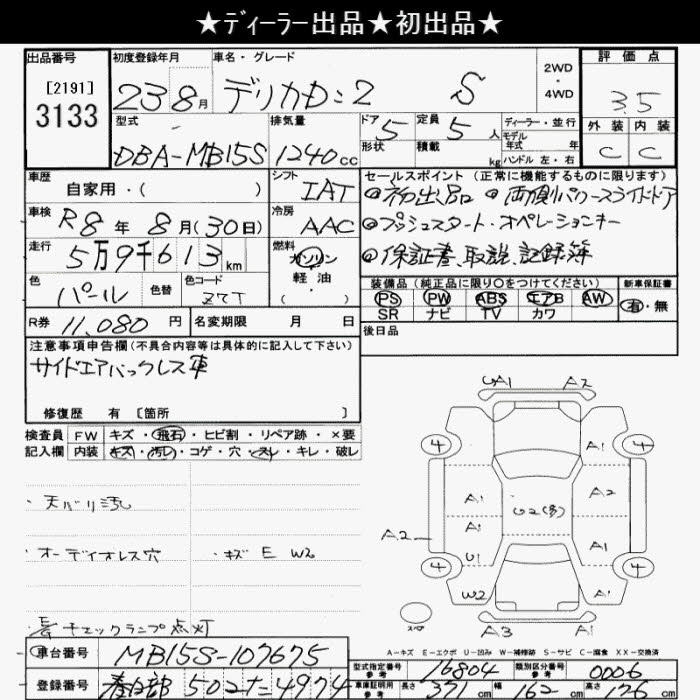 ★ディーラー出品★初出品★
出品番号 初度登録年月 車名・グレード 2WD・4WD 評価点
[2191] 3133 23 8月 デリカD:2 S 3.5
型式 排気量 ドア 5 定員 5人 ディーラー・並行 外装 内装
DBA-MB15S 1240cc 形状 積載 kg モデル年式 年 ハンドル 左・右 C C
車歴 自家用・( ) シフト IAT セールスポイント(正常に機能するものに限ります)
◎初出品 ◎両側パワースライドドア
車検 R8年8月(30日) 冷房 AAC ◎プッシュスタート・オペレーションキー
走行 5万9千613km 燃料 ガソリン・軽油・( ) ◎保証書、取説、記録簿
色 パール 色替 色コード Z7T 装備品(純正品に限り○をつけてください) 新車保証書
PS PW ABS エアB AW 有・無
SR ナビ TV カワ
R券 11,080円 名変期限 月 日 後日品
注意事項申告欄(不具合内容等は具体的に記入して下さい)
サイドエアバックレス車
修復歴 有 [箇所 ]
検査員 FW キズ・飛石・ヒビ割・リペア跡・×要
記入欄 内装 キズ・汚レ・コゲ・穴・スレ・キレ・破レ
・天バリ汚
・オーディオレス穴 ・キズ E W2
チェックランプ点灯
UA1 A2
4 A1 4
A1 A2
G2(多)
A2 A1 A1
4 U1 4
W2 A1
スペア A3 A1
A-キズ E-エクボ U-凹み W-補修跡 S-サビ C-腐食 XX-交換済
車台番号 MB15S-107675 型式指定番号 参考 16804 類別区分番号 参考 0006
登録番号 春日部 502 た 4974 車庫証明用 参考 長さ 371cm 幅 162cm 高さ 76cm